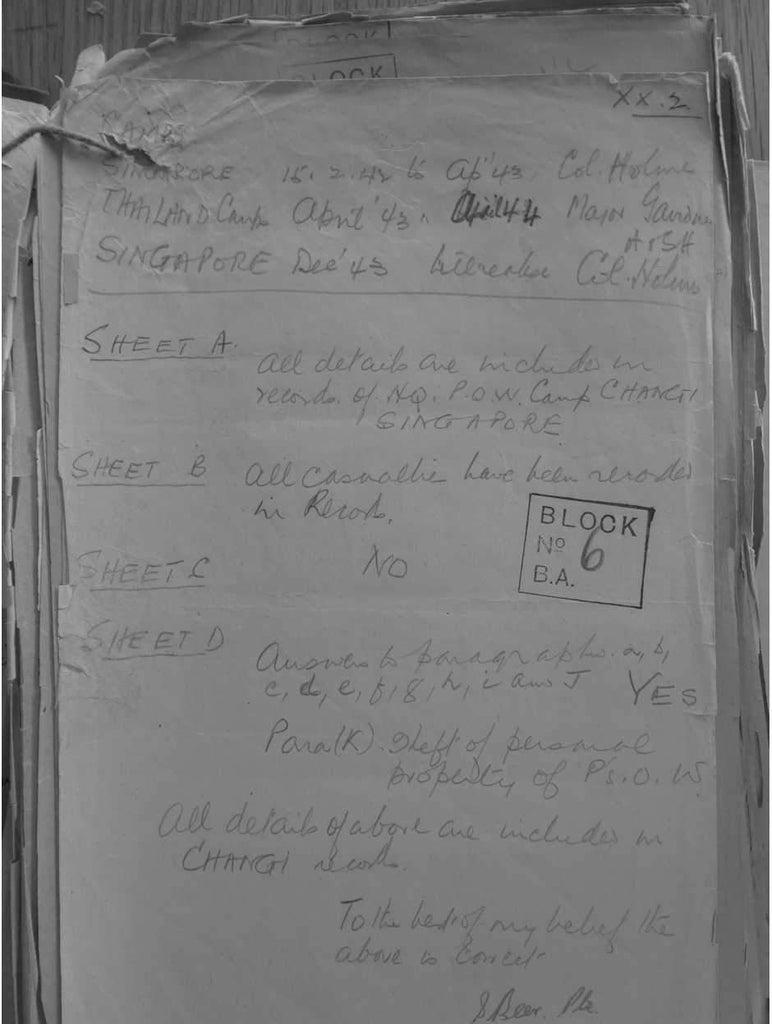 BLOCK
BLOCK
XX.2
CAMPS
SINGAPORE 15.2.42 to Ap'43 Col. Holme
THAILAND Camp April '43. April 44 Major Gairdner
A & SH
SINGAPORE Dec' 43 Col. Holme
SHEET A.
All details are included in
records of HQ. P.O.W. Camp CHANGI
SINGAPORE
SHEET B
All casualties have been recorded
in Records.
BLOCK
No 6
B.A.
SHEET C NO
SHEET D
Answers to paragraphs. a, b,
c, d, e, f, g, h, i and J YES
Para(K). Theft of personal
property of P's. O. W.
All details of above are included in
CHANGI records.
To the best of my belief the
above is correct.
S Beer. Pte.